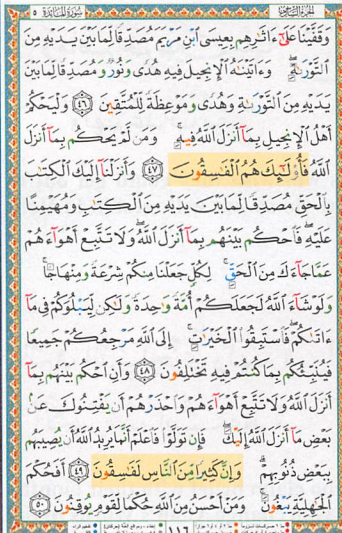 الجزء السادس سورة المائدة ٥
وَقَفَّيْنَا عَلَىٰ ءَاثَٰرِهِم بِعِيسَى ٱبْنِ مَرْيَمَ مُصَدِّقًا لِّمَا بَيْنَ يَدَيْهِ مِنَ
ٱلتَّوْرَىٰةِ وَءَاتَيْنَٰهُ ٱلْإِنجِيلَ فِيهِ هُدًى وَنُورٌ وَمُصَدِّقًا لِّمَا بَيْنَ
يَدَيْهِ مِنَ ٱلتَّوْرَىٰةِ وَهُدًى وَمَوْعِظَةً لِّلْمُتَّقِينَ ٤٦ وَلْيَحْكُمْ
أَهْلُ ٱلْإِنجِيلِ بِمَآ أَنزَلَ ٱللَّهُ فِيهِ وَمَن لَّمْ يَحْكُم بِمَآ أَنزَلَ
ٱللَّهُ فَأُو۟لَٰٓئِكَ هُمُ ٱلْفَٰسِقُونَ ٤٧ وَأَنزَلْنَآ إِلَيْكَ ٱلْكِتَٰبَ
بِٱلْحَقِّ مُصَدِّقًا لِّمَا بَيْنَ يَدَيْهِ مِنَ ٱلْكِتَٰبِ وَمُهَيْمِنًا
عَلَيْهِ فَٱحْكُم بَيْنَهُم بِمَآ أَنزَلَ ٱللَّهُ وَلَا تَتَّبِعْ أَهْوَآءَهُمْ
عَمَّا جَآءَكَ مِنَ ٱلْحَقِّ لِكُلٍّ جَعَلْنَا مِنكُمْ شِرْعَةً وَمِنْهَاجًا
وَلَوْ شَآءَ ٱللَّهُ لَجَعَلَكُمْ أُمَّةً وَٰحِدَةً وَلَٰكِن لِّيَبْلُوَكُمْ فِى مَآ
ءَاتَىٰكُمْ فَٱسْتَبِقُوا۟ ٱلْخَيْرَٰتِ إِلَى ٱللَّهِ مَرْجِعُكُمْ جَمِيعًا
فَيُنَبِّئُكُم بِمَا كُنتُمْ فِيهِ تَخْتَلِفُونَ ٤٨ وَأَنِ ٱحْكُم بَيْنَهُم بِمَآ
أَنزَلَ ٱللَّهُ وَلَا تَتَّبِعْ أَهْوَآءَهُمْ وَٱحْذَرْهُمْ أَن يَفْتِنُوكَ عَنۢ
بَعْضِ مَآ أَنزَلَ ٱللَّهُ إِلَيْكَ فَإِن تَوَلَّوْا۟ فَٱعْلَمْ أَنَّمَا يُرِيدُ ٱللَّهُ أَن يُصِيبَهُم
بِبَعْضِ ذُنُوبِهِمْ وَإِنَّ كَثِيرًا مِّنَ ٱلنَّاسِ لَفَٰسِقُونَ ٤٩ أَفَحُكْمَ
ٱلْجَٰهِلِيَّةِ يَبْغُونَ وَمَنْ أَحْسَنُ مِنَ ٱللَّهِ حُكْمًا لِّقَوْمٍ يُوقِنُونَ ٥٠
١١٦